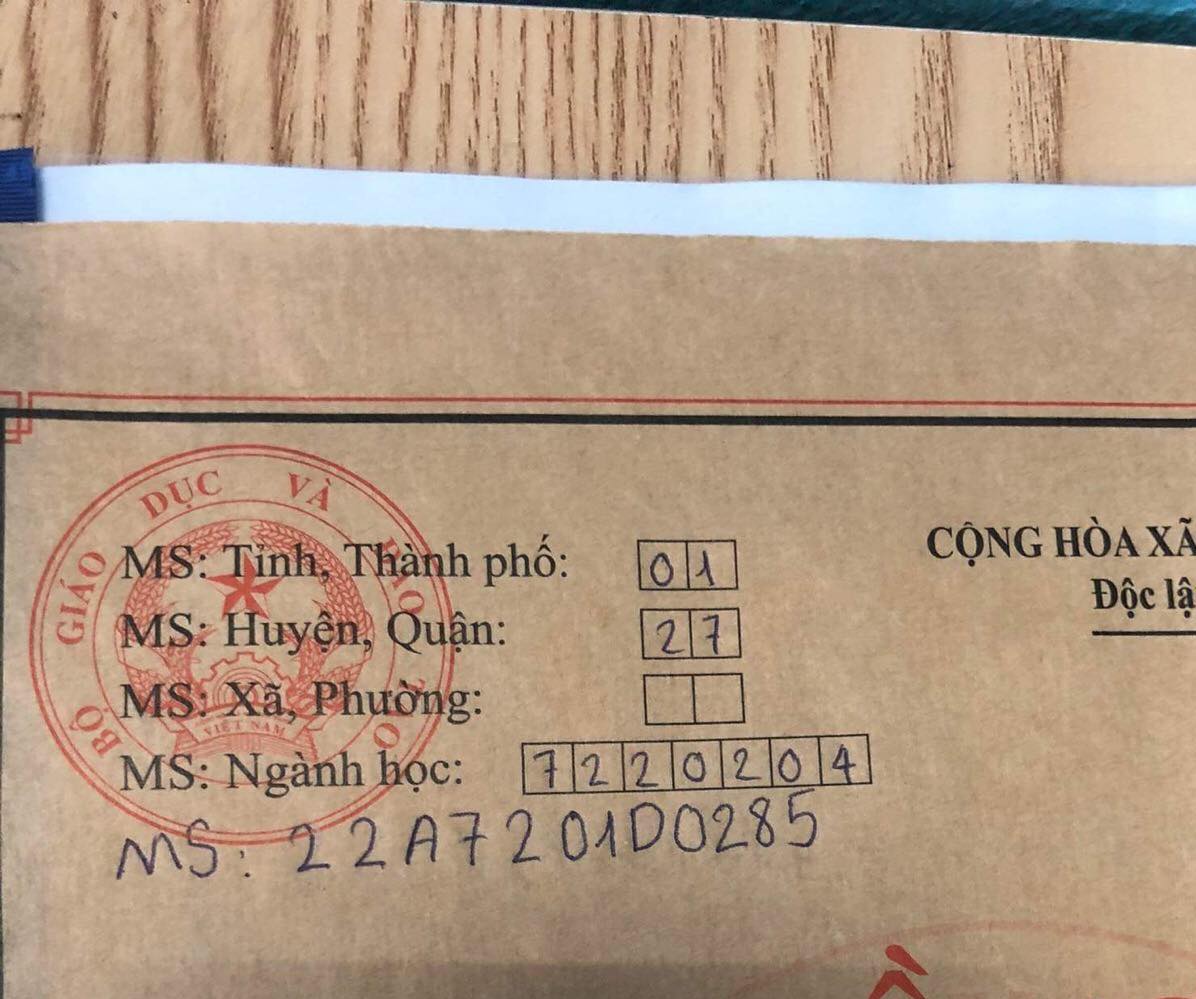 BỘ GIÁO DỤC VÀ ĐÀO TẠO
VIỆT NAM
MS: Tỉnh, Thành phố: 01
MS: Huyện, Quận: 27
MS: Xã, Phường:
MS: Ngành học: 7220204
MS: 22A7201D0285
CỘNG HÒA XÃ
Độc lậ